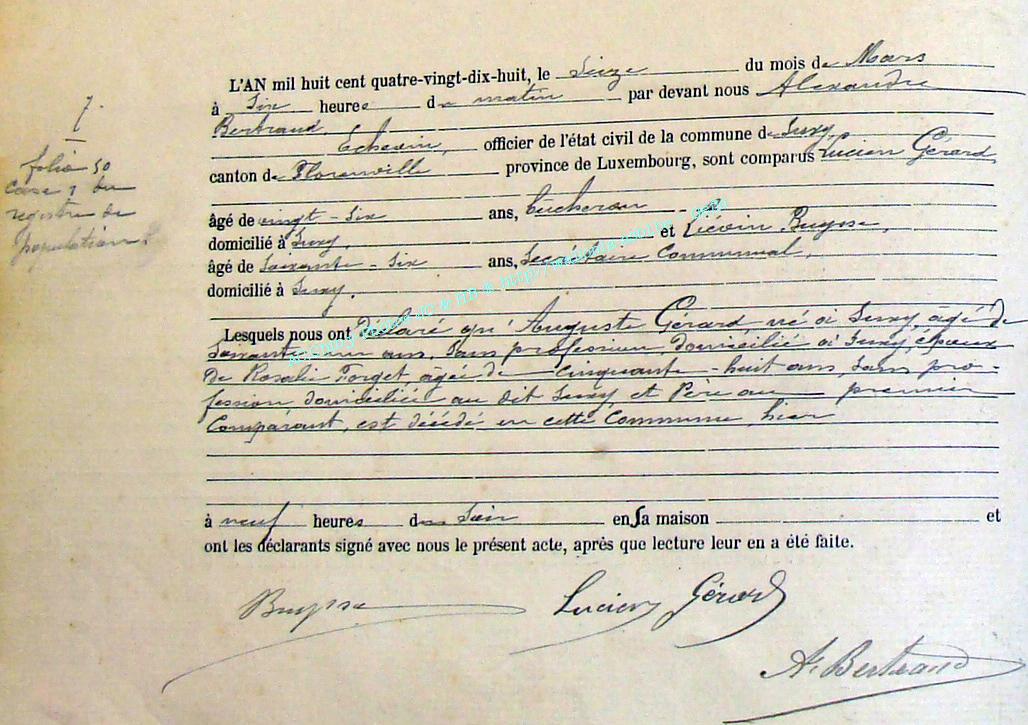 7.
folio 50
Case 1 du
registre de
population
L'AN mil huit cent quatre-vingt-dix-huit, le Seize du mois de Mars
à Six heures du matin par devant nous Alexandre
Bertrand,
Echevin, officier de l'état civil de la commune de Suxy,
canton de Florenville province de Luxembourg, sont comparus Lucien Gérard
âgé de vingt-six ans, bûcheron
domicilié à Suxy, et Liévin Buysse,
âgé de Soixante-Six ans, Secrétaire Communal,
domicilié à Suxy.
Lesquels nous ont déclaré qu'Auguste Gérard, né à Suxy, âgé de
Soixante un ans, Sans profession, domicilié à Suxy, époux
de Rosalie Forget, âgée de Cinquante-huit ans, Sans pro-
fession domiciliée au dit Suxy et Père au premier
Comparant, est décédé en cette Commune, hier
à neuf heures du Soir en Sa maison et
ont les déclarants signé avec nous le présent acte, après que lecture leur en a été faite.
Buysse Lucien Gérard
A. Bertrand